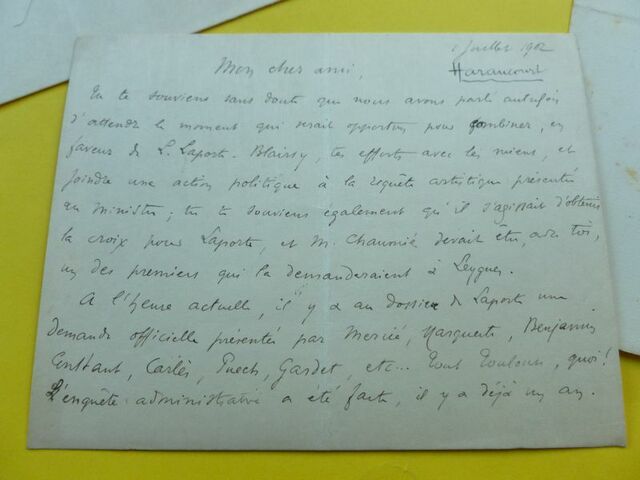 1 Juillet 1902
Haraucourt
Mon cher ami,
Tu te souviens sans doute que nous avons parlé autrefois
d'attendre le moment qui serait opportun pour combiner, en
faveur de L. Laporte-Blairsy, tes efforts avec les miens, et
joindre une action politique à la requête artistique présentée
au ministre ; tu te souviens également qu'il s'agissait d'obtenir
la croix pour Laporte, et M. Chaumié devait être, avec toi,
un des premiers qui la demanderaient à Leygues.
A l'heure actuelle, il y a au dossier de Laporte une
demande officielle présentée par Mercié, Marqueste, Benjamin
Constant, Carlès, Puech, Gardet, etc... tout Toulouse, quoi!
L'enquête administrative a été faite, il y a déjà un an.